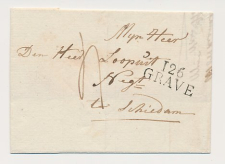 Myn Heer
Den Heer Loopuit
Negt
te Schiedam
126
GRAVE